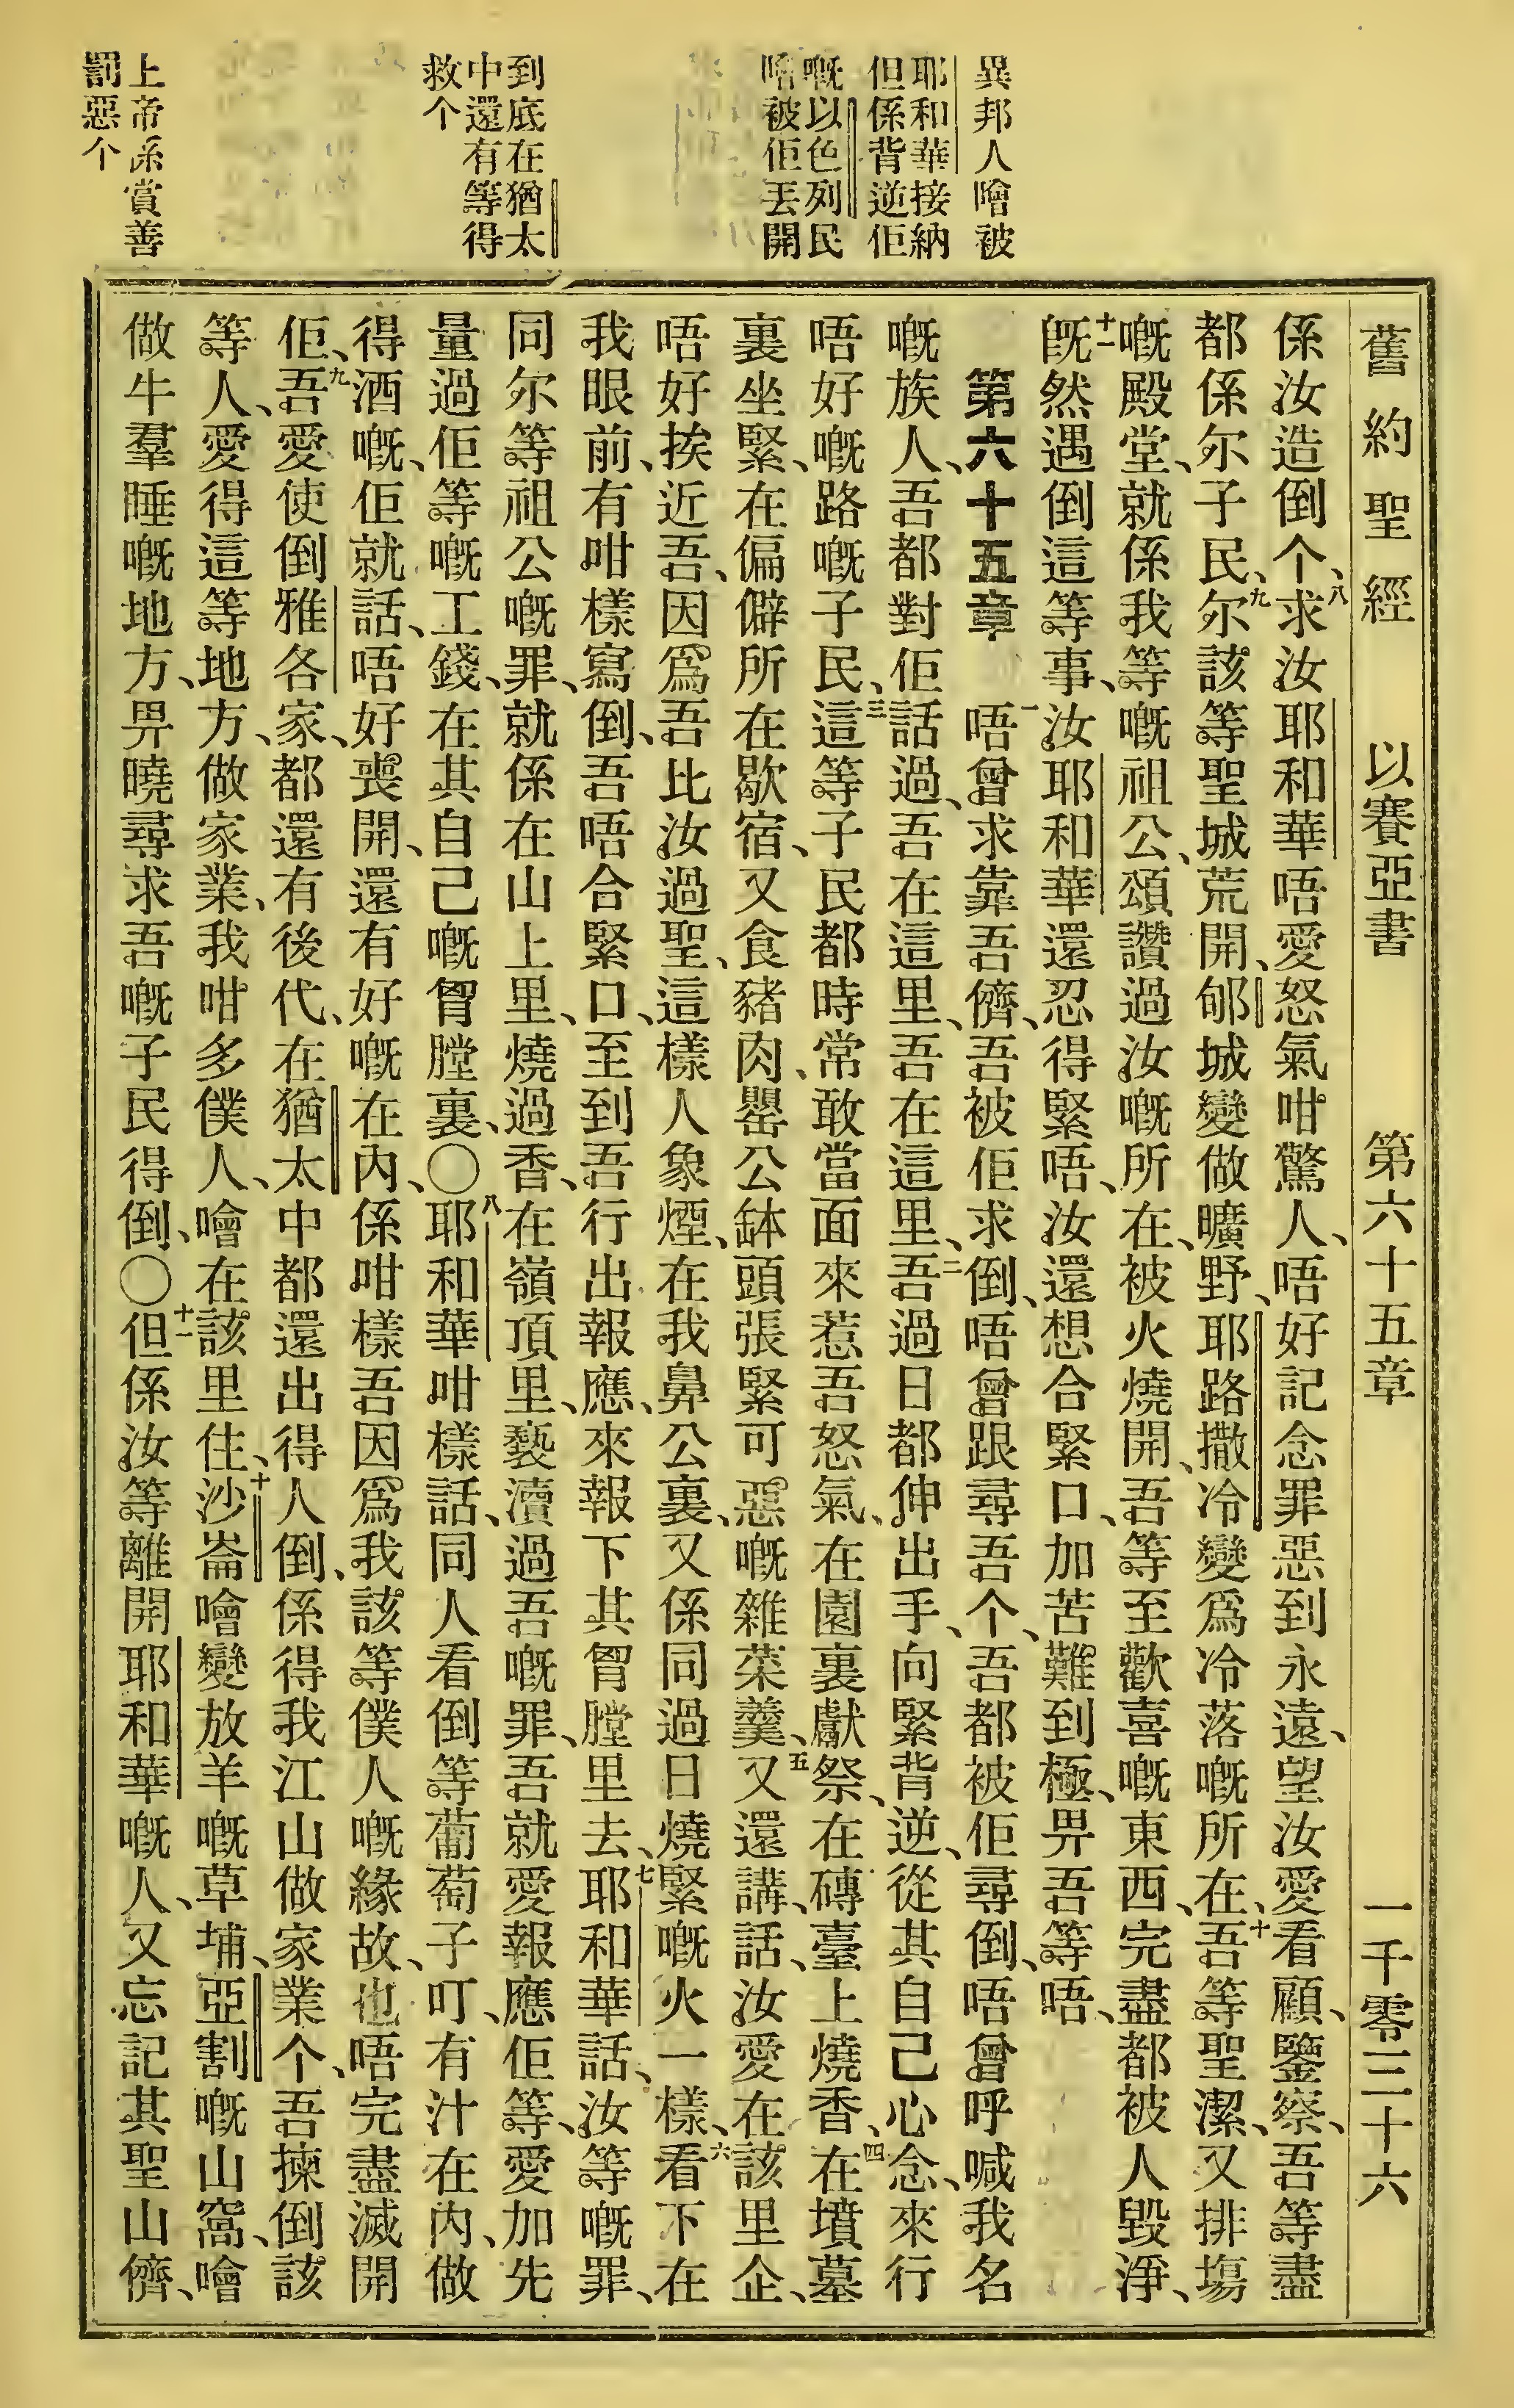 異邦人噲被
耶和華接納
但係背逆佢
嘅以色列民
噲被佢丟開
到底在猶太
中還有等得
救个
上帝係賞善
罰惡个
舊約聖經 以賽亞書 第六十五章 一千零三十六
係汝造倒个、八求汝耶和華唔愛怒氣咁驚人、唔好記念罪惡到永遠、望汝愛看顧、鑒察、吾等盡
都係尔子民、九尔該等聖城荒開、郇城變做曠野、耶路撒冷變爲冷落嘅所在、十吾等聖潔、又排塲
嘅殿堂、就係我等嘅祖公、頌讚過汝嘅所在、被火燒開、吾等至歡喜嘅東西、完盡都被人毀淨、
十二旣然遇倒這等事、汝耶和華還忍得緊唔、汝還想合緊口、加苦難到極、畀吾等唔、
第六十五章 一唔曾求靠吾儕、吾被佢求倒、唔曾跟尋吾个、吾都被佢尋倒、唔曾呼喊我名
嘅族人、吾都對佢話過、吾在這里、吾在這里、二吾過日都伸出手、向緊背逆、從其自己心念、來行
唔好嘅路嘅子民、三這等子民都時常敢當面來惹吾怒氣、在園裏獻祭、在磚臺上燒香、四在墳墓
裏坐緊、在偏僻所在歇宿、又食豬肉、罌公鉢頭張緊可惡嘅雜菜羹、五又還講、話、汝愛在該里企、
唔好挨近吾、因爲吾比汝過聖、這樣人象煙、在我鼻公裏、又係同過日燒緊嘅火一樣、六看下在
我眼前、有咁樣寫倒、吾唔合緊口、至到吾行出報應、來報下其胷膛里去、七耶和華話、汝等嘅罪、
同尔等祖公嘅罪、就係在山上里、燒過香、在嶺頂里、褻瀆過吾嘅罪、吾就愛報應佢等、愛加先
量過佢等嘅工錢、在其自己嘅胷膛裏、〇八耶和華咁樣話、同人看倒等葡萄子叮、有汁在內、做
得酒嘅、佢就話、唔好喪開、還有好嘅在內、係咁樣吾因爲我該等僕人嘅緣故、也唔完盡滅開
佢、九吾愛使倒雅各家、都還有後代、在猶太中都還出得人倒、係得我江山做家業个、吾揀倒該
等人、愛得這等地方、做家業、我咁多僕人、噲在該里住、十沙崙噲變放羊嘅草埔、亞割嘅山窩、噲
做牛羣睡嘅地方、畀曉尋求吾嘅子民得倒、〇十一但係汝等離開耶和華嘅人、又忘記其聖山儕、